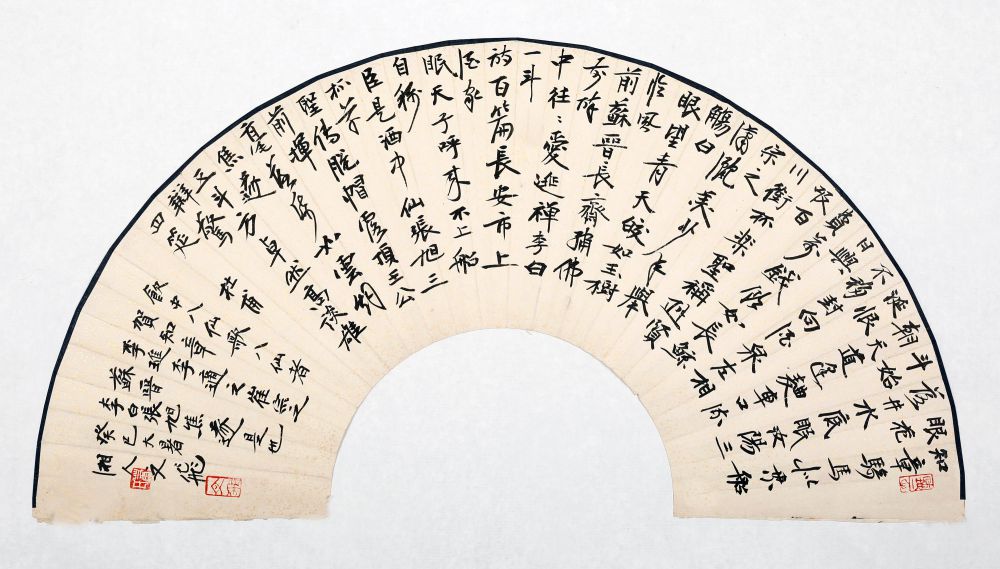 知章騎馬似乘船
眼花
落井水底眠汝陽三
斗始
朝天道逢麴車口
涎恨
不移封向酒泉左相
日興
費萬錢飲如長鯨
吸百
川銜杯樂聖稱避賢
宗之
瀟灑美少年舉
觴白
眼望青天皎如玉樹
臨風
前蘇晉長齋繡佛
前醉
中往〻愛逃禪李白
一斗
詩百篇長安市上
酒家
眠天子呼來不上船
自稱
臣是酒中仙張旭三
杯草
聖傳脫帽露頂王公
前揮
毫落紙如雲烟
焦遂
五斗方卓然高談雄
辯驚
四筵
杜甫
飲中八仙歌八仙者
賀知章李適之崔宗之
李璡蘇晉李白張旭焦遂是也
癸巳大暑
湘人文飛